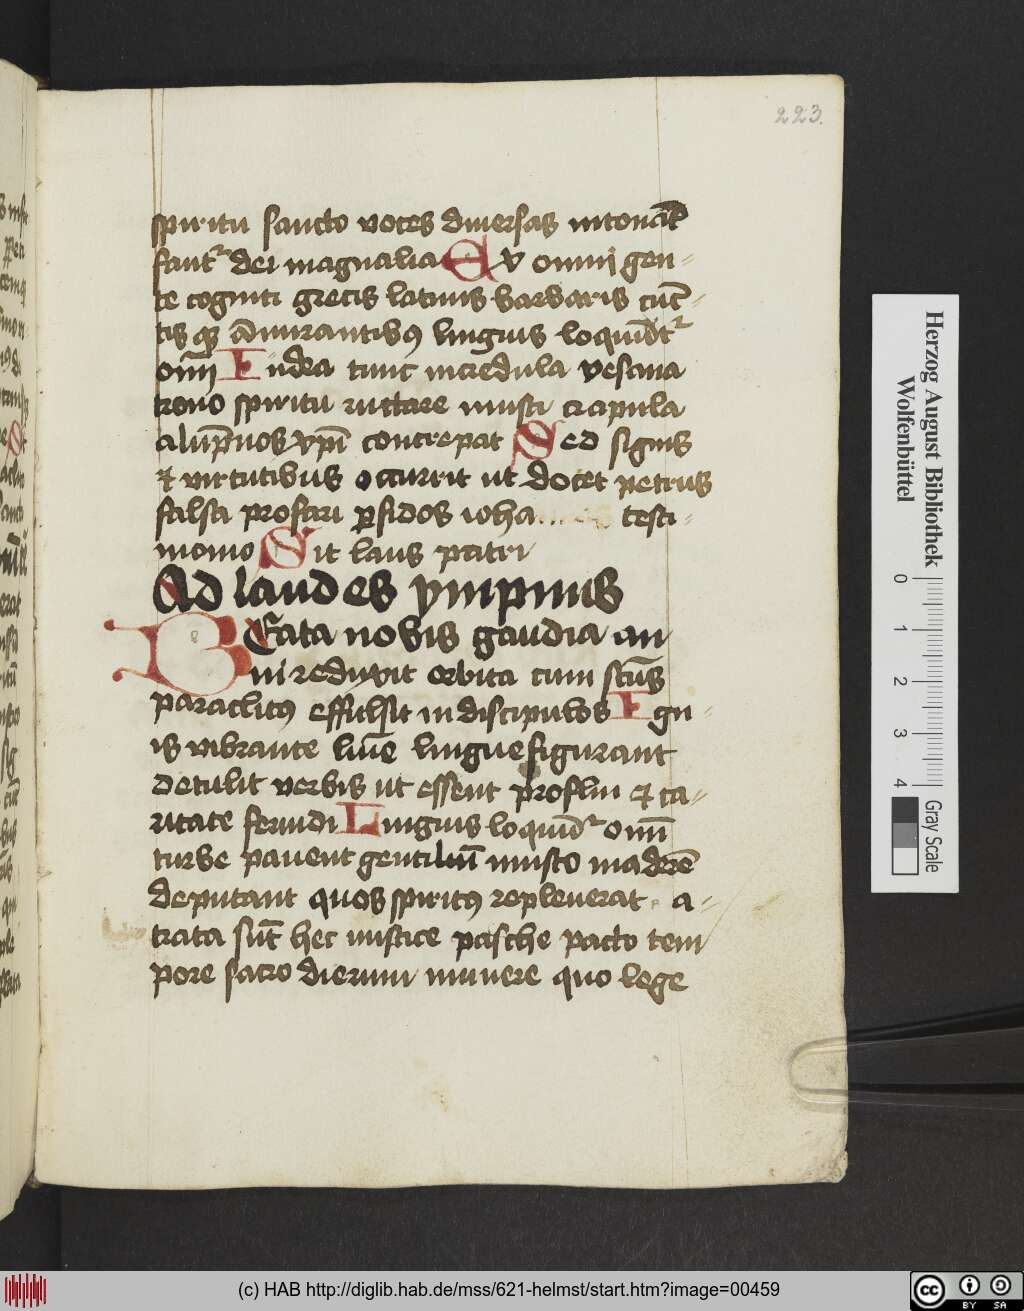 223.
spiritu sancto voces diuersas intonāt
fant᷑ dei magnalia Ex omnī gen-
te cogniti grecis latinis barbaris cūc-
tis qꝫ ādmirantibꝰ linguis loquūt᷑
om̄ī Iudea tunc incredula vesana
trono spiritu ructare musti crapula
alūpnos xp̄i contrepat Sed signis
et virtutibus occurrit ut docet petrus
falsa profari ꝑfidos ioha testi-
monio Sit laus patri
Ad laudes ympnus
BEata nobis gaudia an
ni reduxit orbita cum sctūs
paraclitꝰ effulsit in discipulos Ign-
is vibrante lūīe lingue figurant
detulit verbis ut essent proflui et ca-
ritate feruidi Linguis loquūt᷑ om̄ī
turbe pauent gentiliū musto maderē
deputant quos spiritꝰ repleuerat. a-
trata sūt hec mistice pasche pacto tem
pore sacro dierum munere quo lege
Herzog August Bibliothek
Wolfenbüttel
0 1 2 3 4
Gray Scale
(c) HAB http://diglib.hab.de/mss/621-helmst/start.htm?image=00459
cc BY SA